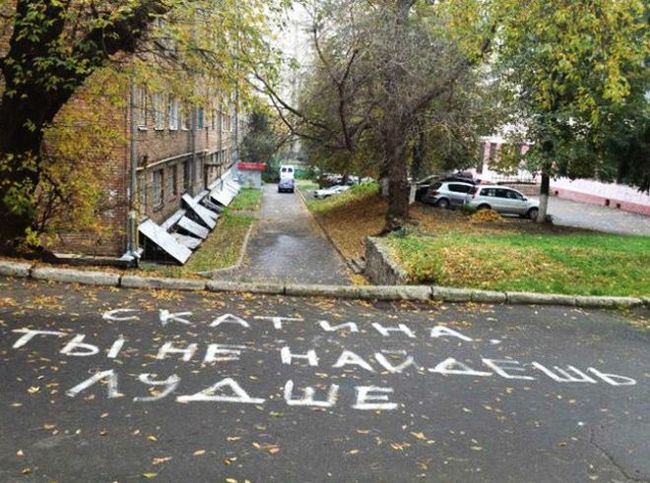 СКАТИНА.
ТЫ НЕ НАЙДЕШЬ
ЛУДШЕ